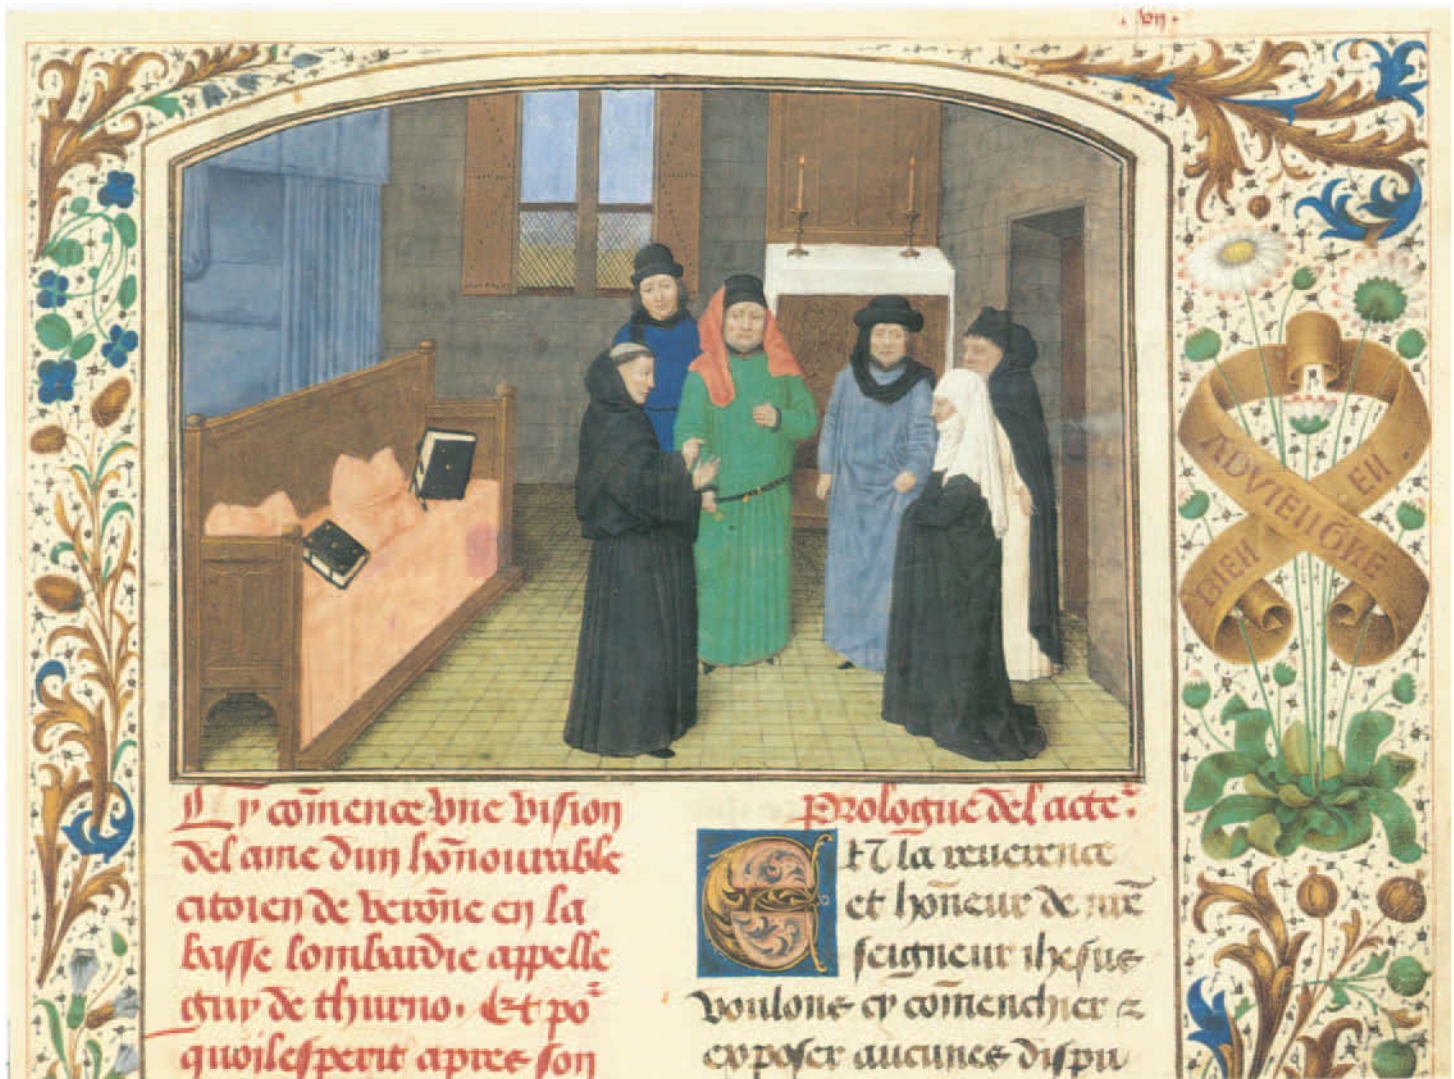 .vii.
Cy cōmence vne vision
del ame dun hōnourable
citoien de verōne en la
basse lombardie appelle
guy de thurno. Et po
quoi lesperit apres son
Prologue del acte
En la reuerence
et hōneur de nr̄e
seigneur ihesus
voulons cy cōmenchier z
exposer aucunes dispu
BIEN
ADVIENGNE
EN